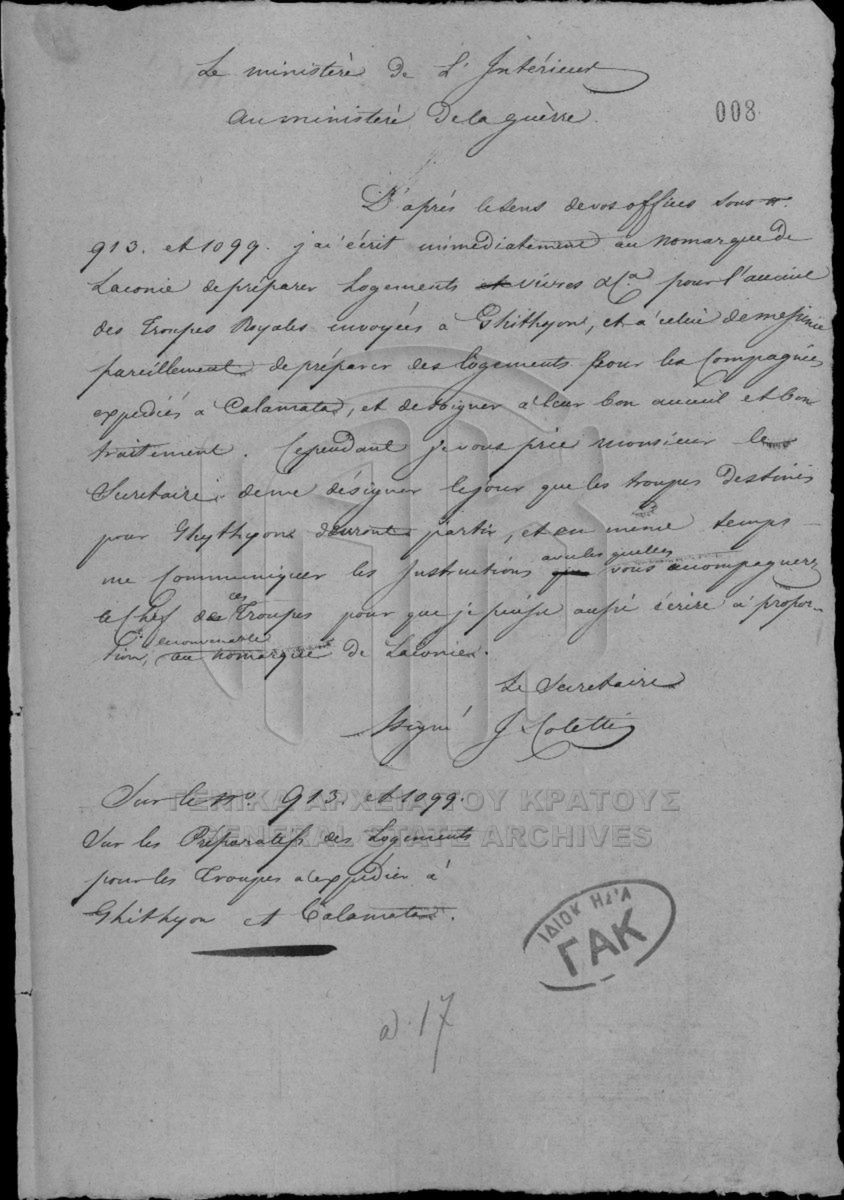 Le ministeré de L'Intérieur
au ministeré de la guèrre.
008
D'aprés le sens de vos offices sous nº.
913. et 1099. j'ai écrit immediatement au nomarque de
Laconie de préparer Logements et vivres &ca pour l'aceuil
des Troupes Royales envoyées à Ghithyon, et à celui de messinie
pareillement de préparer des logements pour les Compagnies
expediés à Calamata, et de soigner à leur bon aceuil et bon
traitement. Cependant je vous prie monsieur le
Secretaire, de me désigner le jour que les troupes destinés
pour Ghythyon devront partir, et en même temps
me communiquer les Instructions avec les quelles vous acompagnerez
le Chef de ces Troupes pour que je puisse aussi écrire à propor-
tion, au nomarque de Laconie.
Le Secretaire
Signé J. Coletti
Sur le nº. 913. et 1099.
Sur les Préparatifs des Logements
pour les Troupes a expédier à
Ghithyon et Calamata.
ΓΕΝΙΚΑ ΑΡΧΕΙΑ ΤΟΥ ΚΡΑΤΟΥΣ
GENERAL STATE ARCHIVES
ΓΑΚ
17